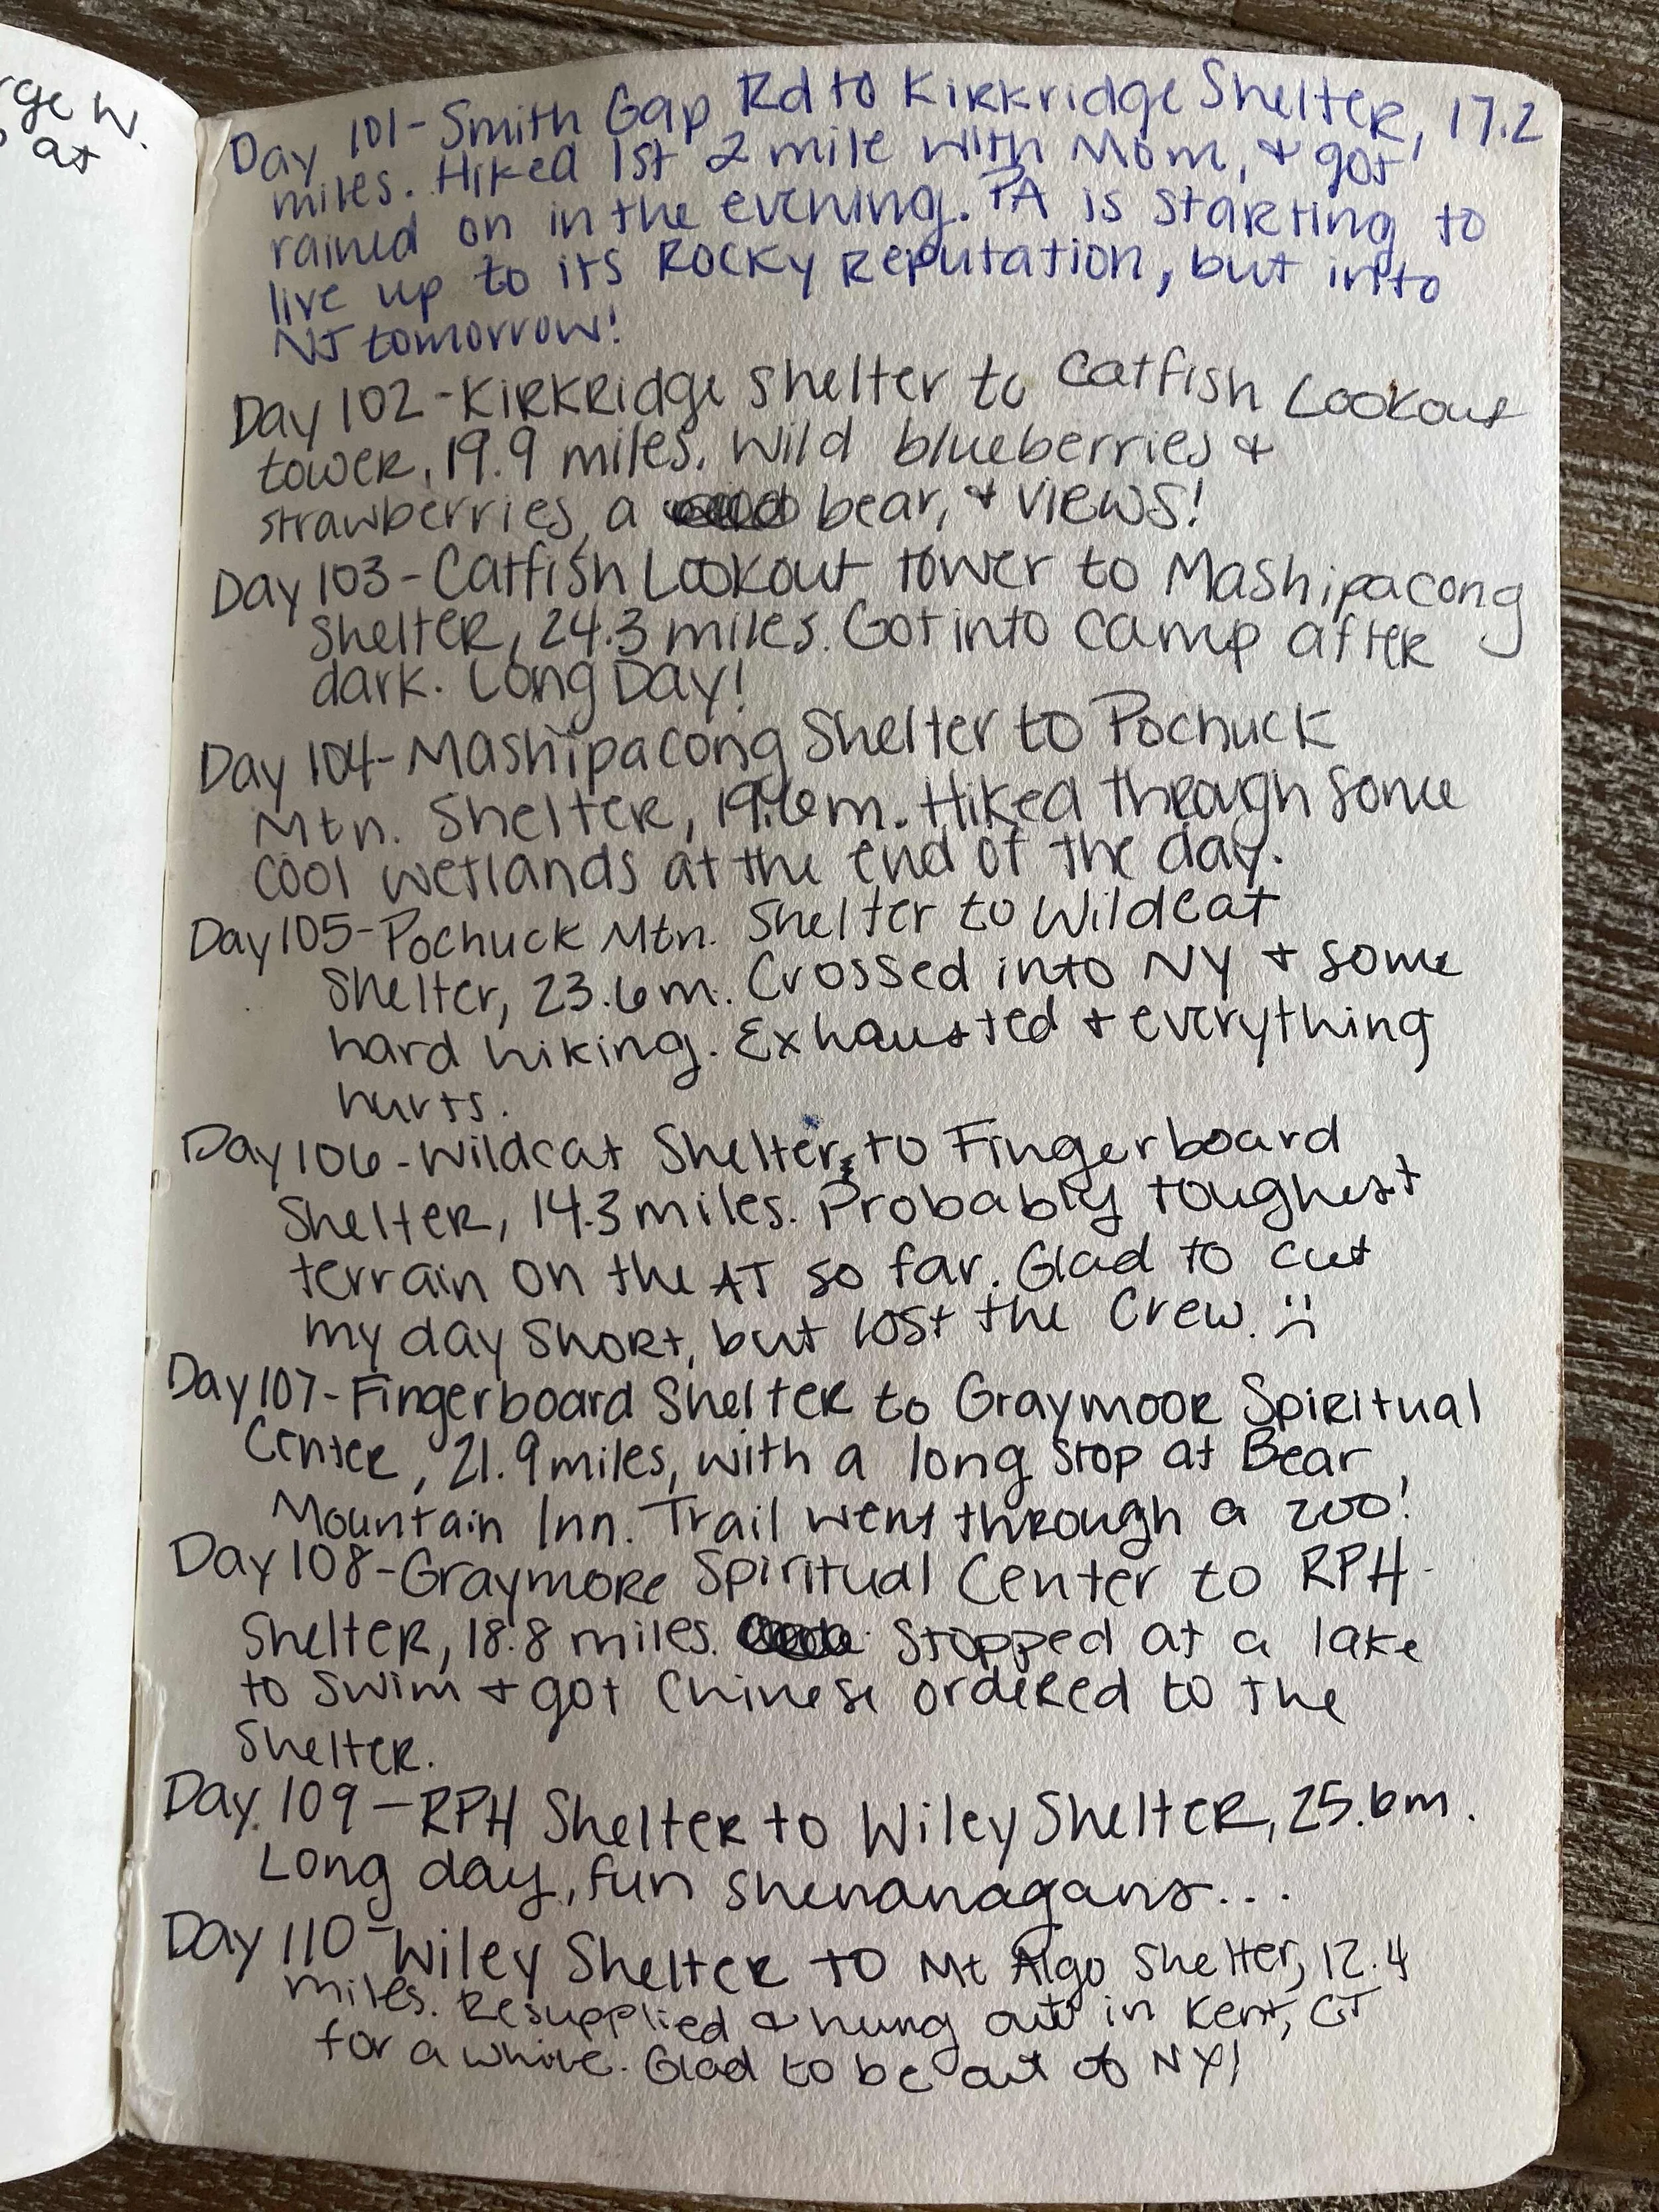 rge W.
at
Day 101-Smith Gap Rd to Kirkridge Shelter, 17.2
miles. Hiked 1st 2 mile with Mom, & got
rained on in the evening. PA is starting to
live up to its Rocky Reputation, but into
NJ tomorrow!
Day 102-Kirkridge Shelter to Catfish Lookout
tower, 19.9 miles. Wild blueberries &
strawberries, a bear, & VIEWS!
Day 103-Catfish Lookout tower to Mashipacong
Shelter, 24.3 miles. Got into camp after
dark. Long Day!
Day 104-Mashipacong Shelter to Pochuck
Mtn. Shelter, 19.6m. Hiked through some
cool wetlands at the end of the day.
Day 105-Pochuck Mtn. Shelter to Wildcat
Shelter, 23.6m. Crossed into NY & some
hard hiking. Exhausted & everything
hurts.
Day 106-Wildcat Shelter to Fingerboard
Shelter, 14.3 miles. Probably toughest
terrain on the AT so far. Glad to cut
my day short, but lost the Crew. :(
Day 107-Fingerboard Shelter to Graymoor Spiritual
Center, 21.9 miles, with a long stop at Bear
Mountain Inn. Trail went through a zoo!
Day 108-Graymore Spiritual Center to RPH
Shelter, 18.8 miles. Stopped at a lake
to swim & got Chinese ordered to the
Shelter.
Day 109-RPH Shelter to Wiley Shelter, 25.6m.
Long day, fun shenanagans...
Day 110-Wiley Shelter to Mt Algo Shelter, 12.4
miles. Resupplied & hung out in Kent, CT
for a while. Glad to be out of NY!